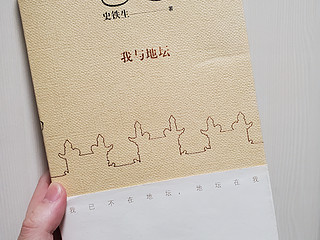 史铁生 著
我与地坛
我已不在地坛，地坛在我